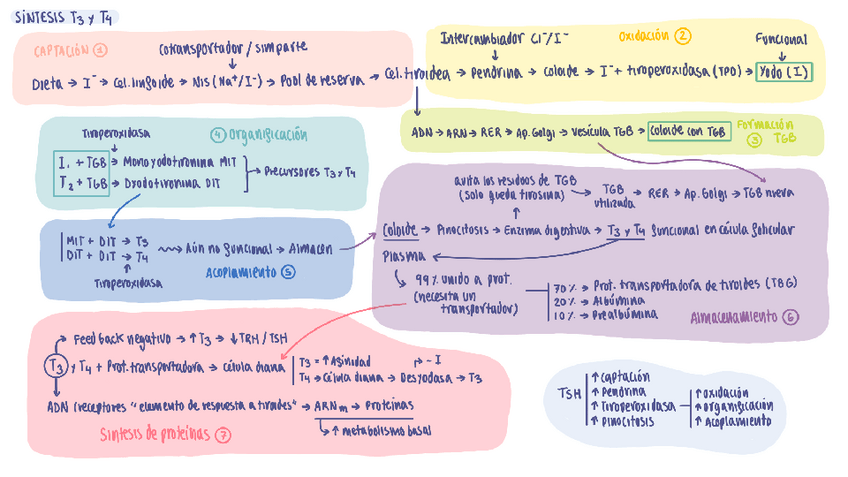 SÍNTESIS T3 y T4
CAPTACIÓN 1
Cotransportador / simporte
Dieta → I⁻ → Cel. linfoide → Nis (Na⁺/I⁻) → Pool de reserva → Cel. tiroidea → Pendrina → coloide → I⁻ + tiroperoxidasa (TPO) → Yodo (I)
Intercambiador Cl⁻/I⁻
Oxidación 2
Funcional
ADN → ARN → RER → Ap. Golgi → Vesícula TGB → Coloide con TGB
Formación
3 TGB
Tiroperoxidasa
4 Organificación
I1 + TGB → Monoyodotironina MIT
T2 + TGB → Dyodotironina DIT
Precursores T3 y T4
MIT + DIT → T3
DIT + DIT → T4
Aún no funcional → Almacén
Tiroperoxidasa
Acoplamiento 5
quita los residuos de TGB
(solo queda tirosina)
TGB
utilizada
→ RER → Ap. Golgi → TGB nueva
Coloide → Pinocitosis → Enzima digestiva → T3 y T4 funcional en célula folicular
Plasma
99% unido a prot.
(necesita un
transportador)
70% → Prot. transportadora de tiroides (TBG)
20% → Albúmina
10% → Prealbúmina
Almacenamiento 6
Feed back negativo → ↑ T3 → ↓ TRH / TSH
T3 y T4 + Prot. transportadora → Célula diana
T3 = ↑ Afinidad
→ - I
T4 → Célula diana → Desyodasa → T3
ADN (receptores "elemento de respuesta a tiroides" → ARNm → Proteínas
↑ metabolismo basal
Sintesis de proteínas 7
TSH
↑ Captación
↑ Pendrina
↑ Tiroperoxidasa
↑ Pinocitosis
↑ Oxidación
↑ Organificación
↑ Acoplamiento